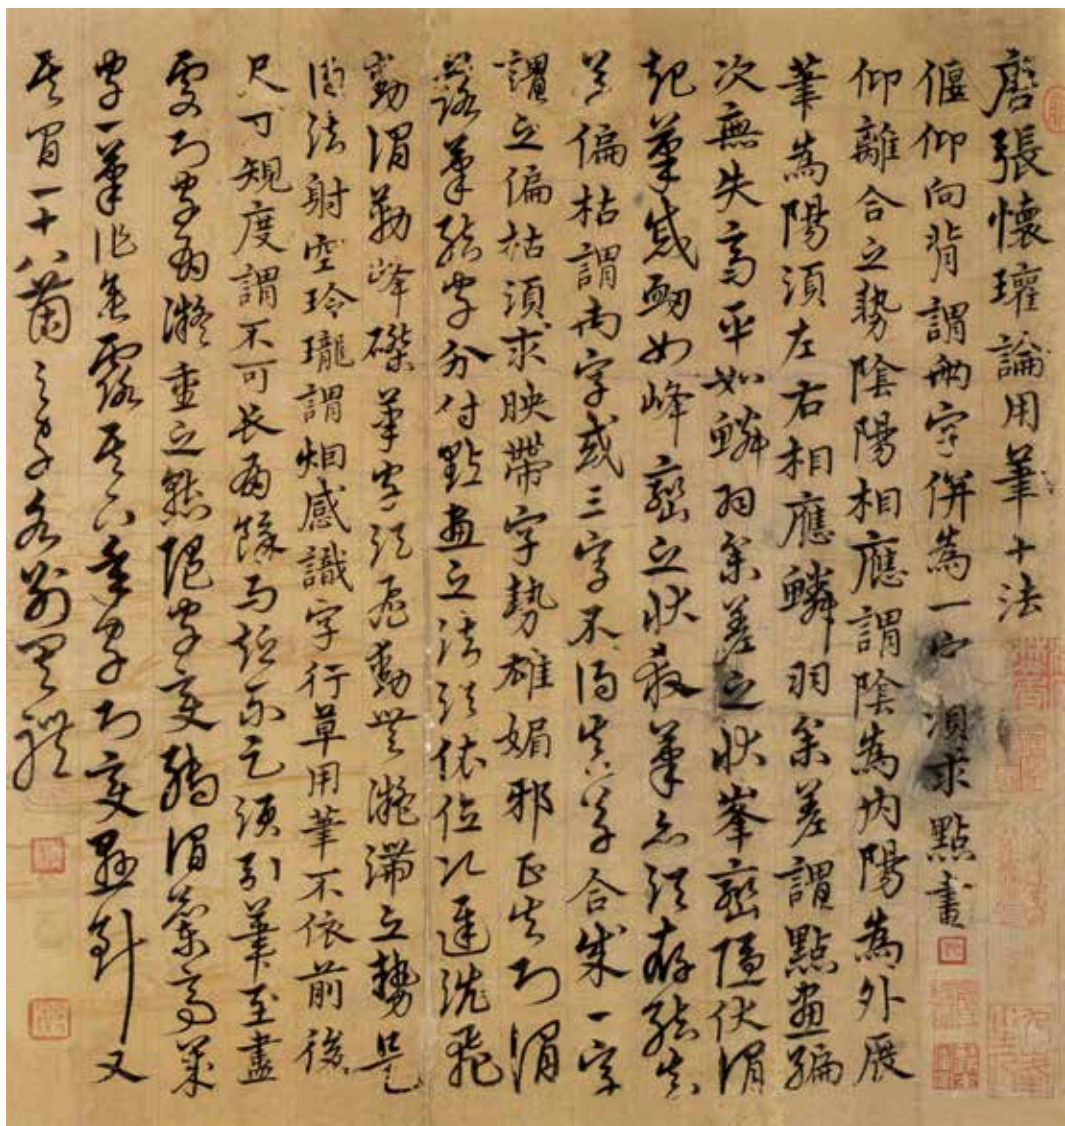 唐張懷瓘論用筆十法
偃仰向背謂兩字併為一字須求點畫
仰離合之勢陰陽相應謂陰為內陽為外展
筆為陽須左右相應鱗羽參差謂點畫編
次無失高平如鱗羽參差之狀峯巒隱伏謂
起筆蹙衄如峰巒之狀殺筆亦須存結真
草偏枯謂兩字或三字不得真草合成一字
謂之偏枯須求映帶字勢雄媚邪正失則謂
落筆結字分付點畫之法須依位次遲洗飛
動謂勒峰磔筆字須飛動無凝滯之勢是
得法射空玲瓏謂烟感識字行草用筆不依前後
尺寸規度謂不可長有餘而短不足須引筆至盡
處則字有凝重之態隨字變轉謂蘭亭歲
字一筆作垂露其下年字則變懸針又
其間一十八箇之字各別有體